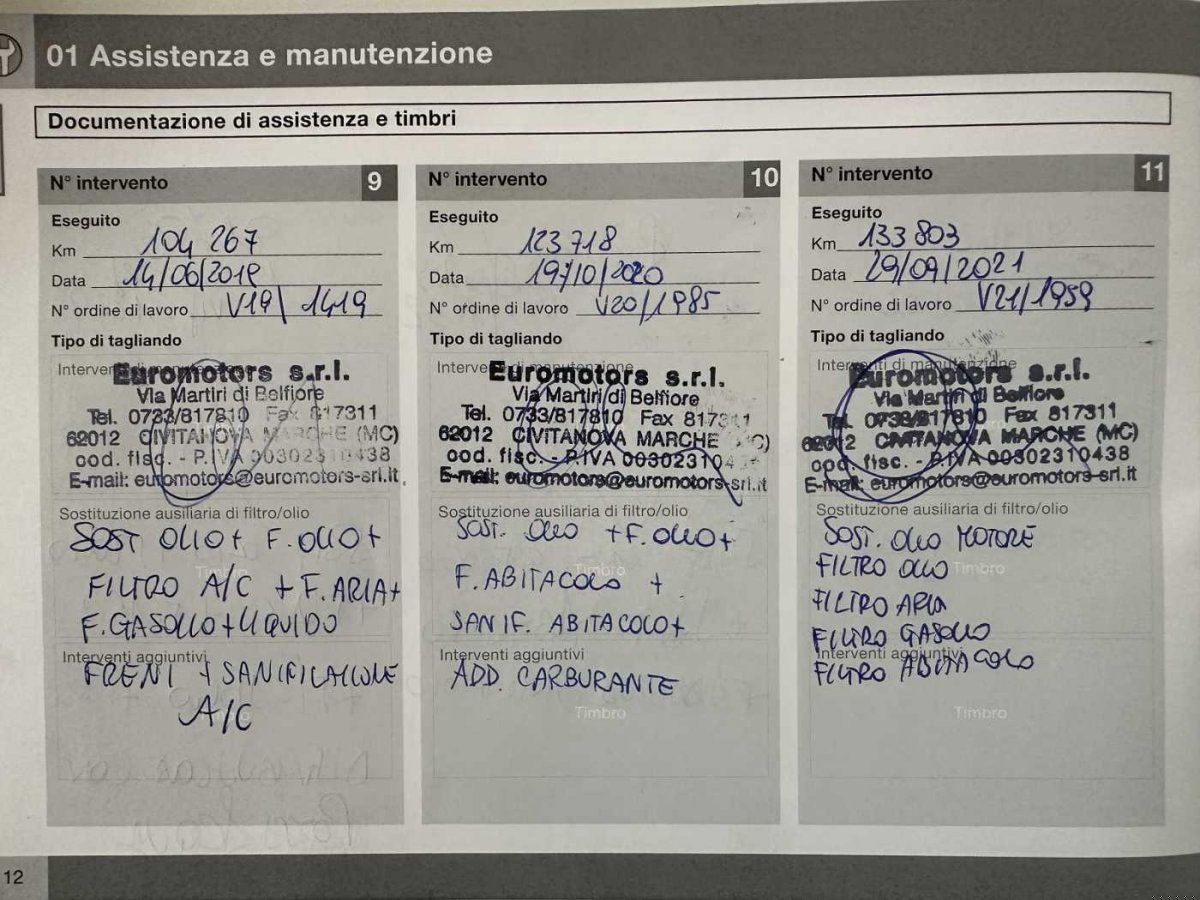 01 Assistenza e manutenzione
Documentazione di assistenza e timbri
N° intervento 9
Eseguito
Km 104 267
Data 14/06/2019
N° ordine di lavoro V19/1419
Tipo di tagliando
Interventi di manutenzione
Euromotors s.r.l.
Via Martiri di Belfiore
Tel. 0733/817810 Fax 817311
62012 CIVITANOVA MARCHE (MC)
cod. fisc. - P.IVA 00302310438
E-mail: euromotors@euromotors-srl.it
Sostituzione ausiliaria di filtro/olio
SOST OLIO + F. OLIO +
Timbro
FILTRO A/C + F. ARIA +
F. GASOLIO + LIQUIDO
Interventi aggiuntivi
FRENI + SANIFICAZIONE
A/C
N° intervento 10
Eseguito
Km 123718
Data 19/10/2020
N° ordine di lavoro V20/1985
Tipo di tagliando
Interventi di manutenzione
Euromotors s.r.l.
Via Martiri di Belfiore
Tel. 0733/817810 Fax 817311
62012 CIVITANOVA MARCHE (MC)
cod. fisc. - P.IVA 003023104
E-mail: euromotors@euromotors-srl.it
Sostituzione ausiliaria di filtro/olio
SOST. OLIO + F. OLIO +
Timbro
F. ABITACOLO +
SANIF. ABITACOLO +
Interventi aggiuntivi
ADD. CARBURANTE
Timbro
N° intervento 11
Eseguito
Km 133 803
Data 29/09/2021
N° ordine di lavoro V21/1959
Tipo di tagliando
Interventi di manutenzione
Euromotors s.r.l.
Via Martiri di Belfiore
Tel. 0733/817810 Fax 817311
62012 CIVITANOVA MARCHE (MC)
cod. fisc. - P.IVA 00302310438
E-mail: euromotors@euromotors-srl.it
Sostituzione ausiliaria di filtro/olio
SOST. OLIO MOTORE
FILTRO OLIO Timbro
FILTRO ARIA
FILTRO GASOLIO
Interventi aggiuntivi
FILTRO ABITACOLO
Timbro
12